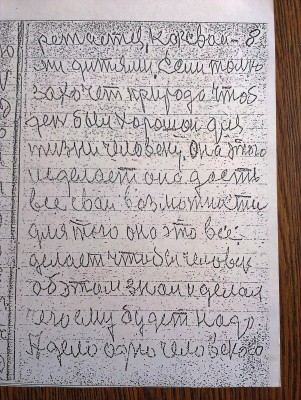 ретается, как свои- 8
ми дитями, Если толко
захочет природа чтоб
ден был хорошой для
жизни человеку, она этого
и сделает она дасть
все сваи возможности
для того она это все
делает чтобы человек
об этом знал и делал
чего ему будет надо
А дело одно человеково